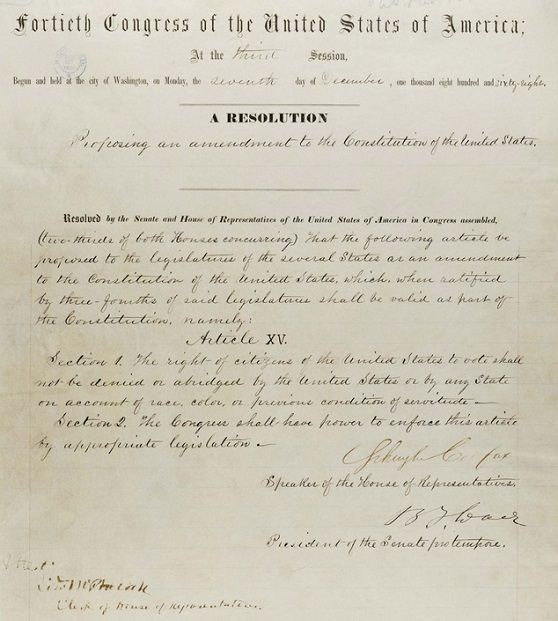 Fortieth Congress of the United States of America;
At the third Session,
Begun and held at the city of Washington, on Monday, the seventh day of December, one thousand eight hundred and sixty-eight.
A RESOLUTION
Proposing an amendment to the Constitution of the United States.
Resolved by the Senate and House of Representatives of the United States of America in Congress assembled,
(two-thirds of both Houses concurring) That the following article be
proposed to the legislatures of the several States as an amendment
to the Constitution of the United States, which, when ratified
by three-fourths of said legislatures shall be valid as part of
the Constitution, namely:
Article XV.
Section 1. The right of citizens of the United States to vote shall
not be denied or abridged by the United States or by any State
on account of race, color, or previous condition of servitude—
Section 2. The Congress shall have power to enforce this article
by appropriate legislation—
Schuyler Colfax
Speaker of the House of Representatives.
B F Wade
President of the Senate protempore.
Attest
Clerk of House of Representatives.